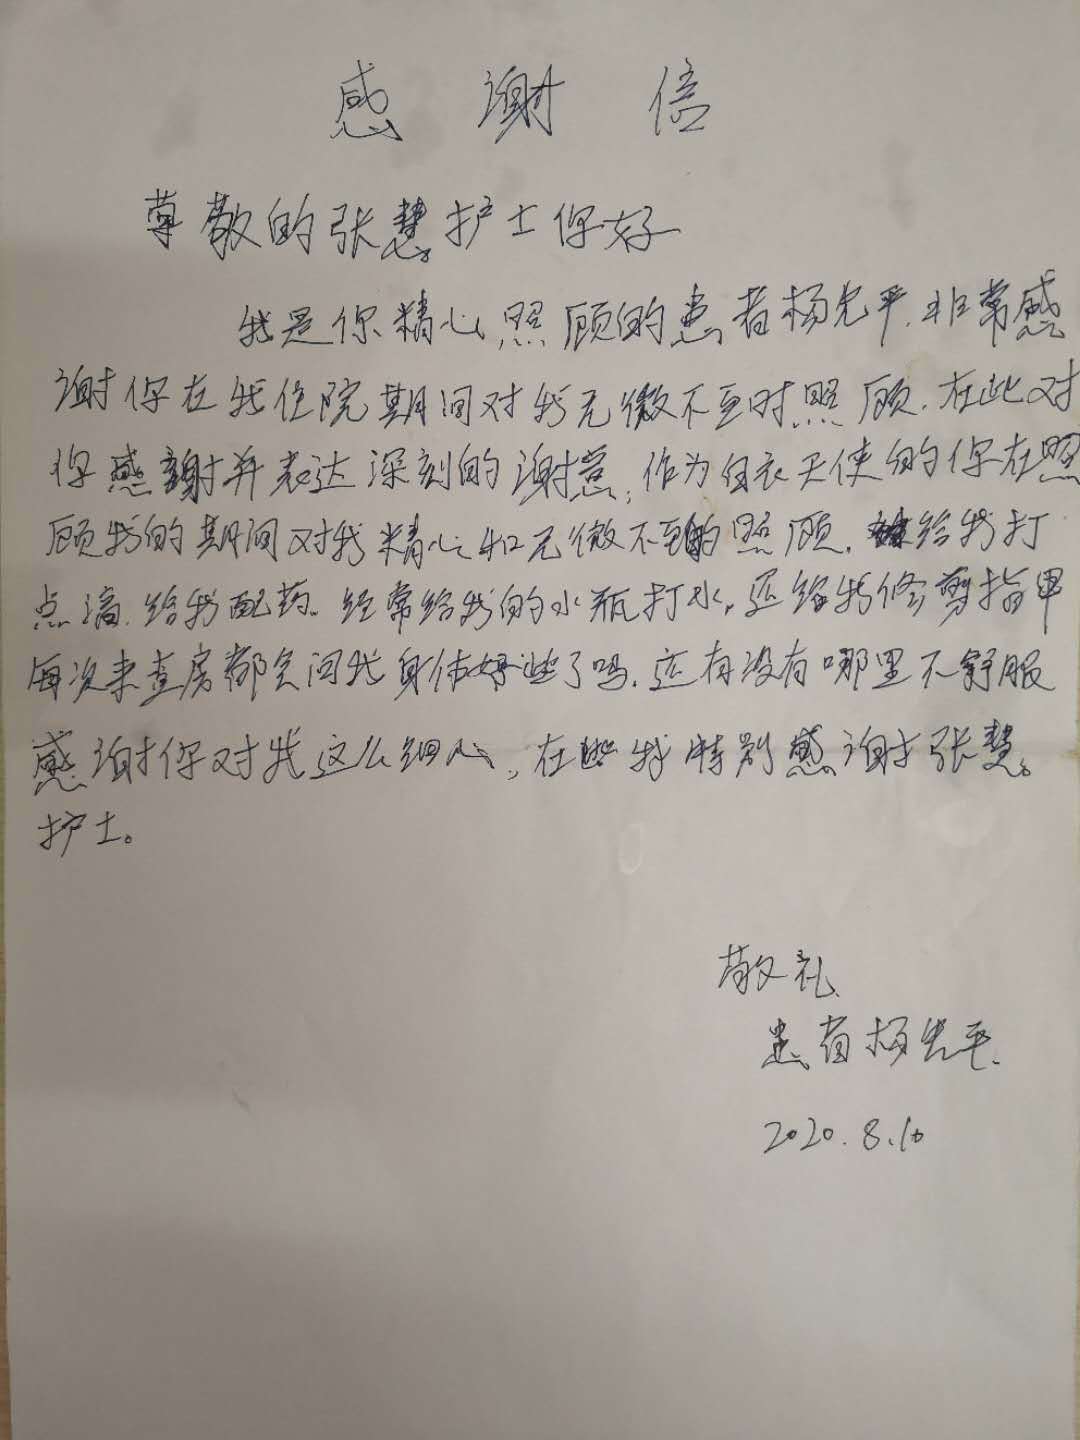 感谢信
尊敬的张慧护士你好
我是你精心照顾的患者杨光平.非常感
谢你在我住院期间对我无微不至时照顾.在此对
你感谢并表达深刻的谢意,作为白衣天使的你在照
顾我的期间对我精心和无微不至的照顾.给我打
点滴.给我配药。经常给我的水瓶打水,还给我修剪指甲
每次来查房都会问我身体好些了吗.还有没有哪里不舒服
感谢你对我这么细心,在此我特别感谢张慧
护士。
敬礼
患者杨光平.
2020.8.10